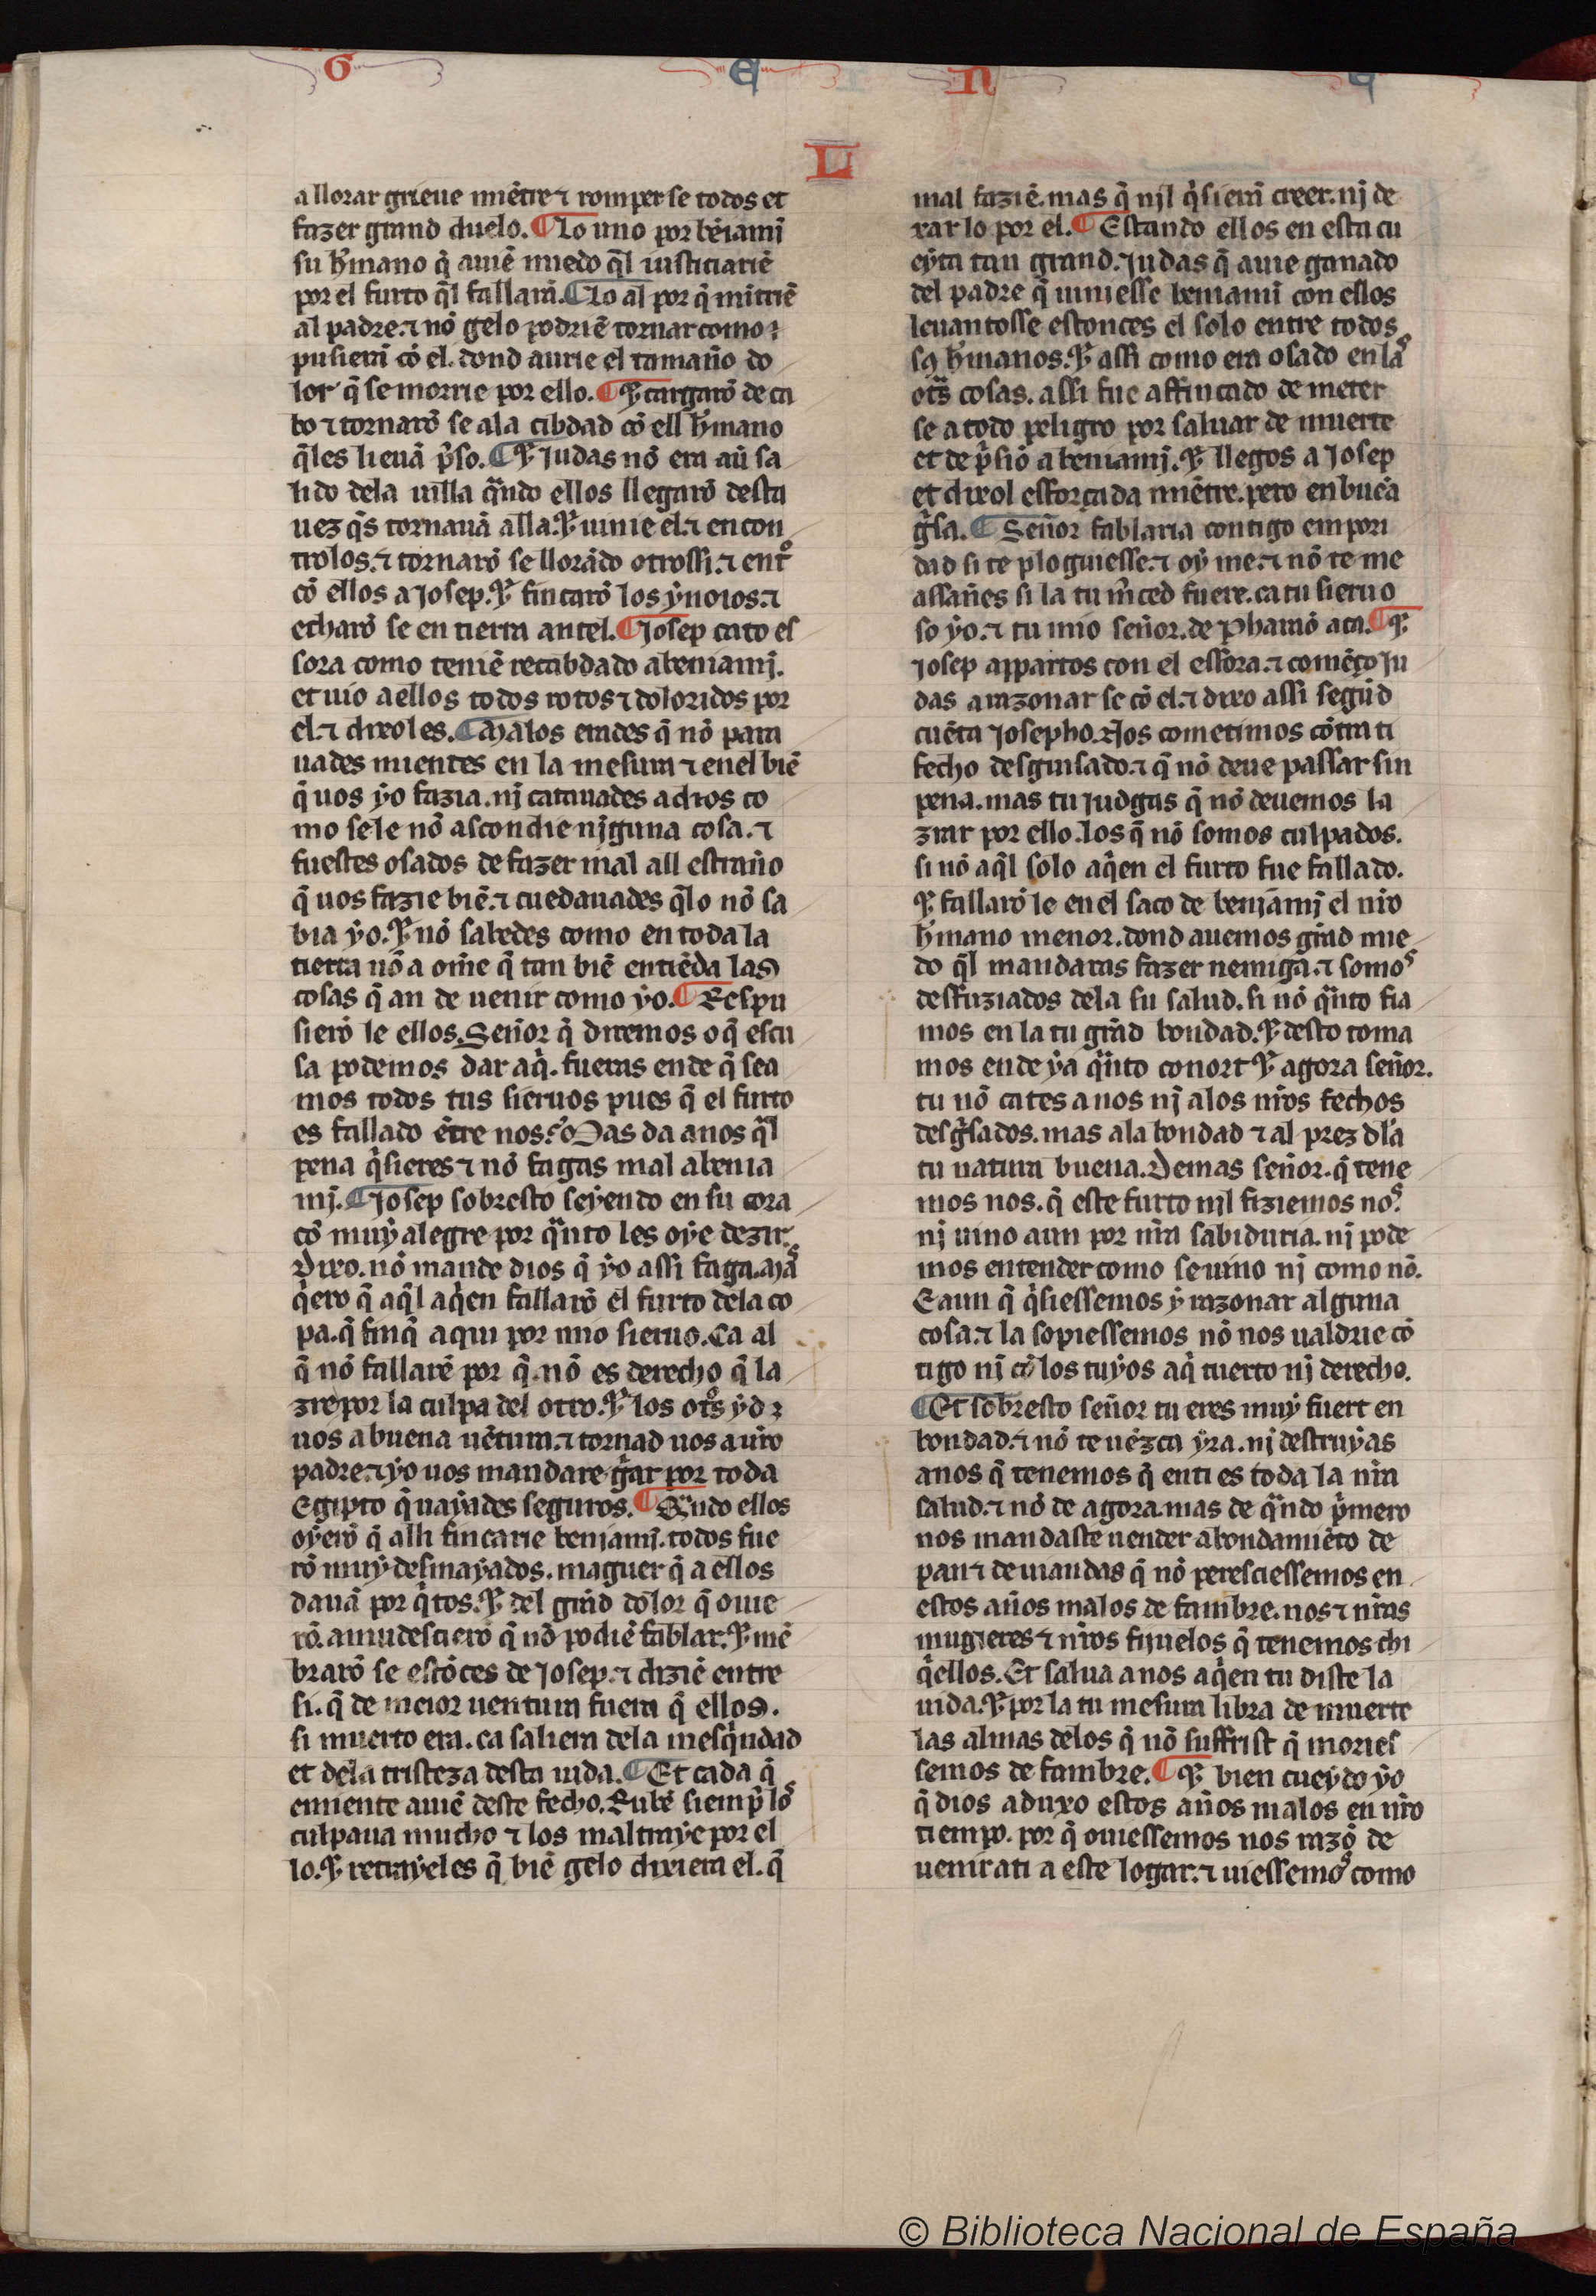 G E N E
L
a llorar grieue miẽtre ⁊ romper se todos et
fazer grand duelo. ¶ Lo uno por bẽiamĩ
su hˀmano q̃ auiẽ miedo q̃l iusticiariẽ
por el furto q̃l fallarã. ¶ Lo al por q̃ mintiẽ
al padre. ⁊ nõ gelo podriẽ tornar como
pusierã cõ el. dond aurie el tamaño do
lor q̃ se morrie por ello. ¶ Ꝩ cargarõ de ca
bo ⁊ tornarõ se ala cibdad cõ ell hˀmano
q̃les lieuã p̃so. ¶ Ꝩ Judas nõ era aũ sa
lido dela uilla q̃ndo ellos llegarõ desta
uez q̃s tornauã alla. Ꝩ uinie el. ⁊ encon
trolos. ⁊ tornarõ se llorãdo otrossi. ⁊ entrͦ
cõ ellos a Josep. Ꝩ fincarõ los ẏnoios. ⁊
echarõ se en tierra antel. ¶ Josep cato es
sora como teniẽ recabdado a beniamj̃.
et uio a ellos todos rotos ⁊ doloridos por
el. ⁊ dixoles. ¶ Malos erades q̃ nõ para
uades mientes en la mesura ⁊ en el biẽ
q̃ uos ẏo fazia. nj̃ catauades a dios co
mo sele nõ asconde nj̃guna cosa. ⁊
fuestes osados de fazer mal all estraño
q̃ uos fazie biẽ. ⁊ cuedauades q̃lo nõ sa
bia ẏo. Ꝩ nõ sabedes como en toda la
tierra nõ a om̃e q̃ tan biẽ entiẽda las
cosas q̃ an de uenir como ẏo. ¶ Respu
sierõ le ellos. Señor q̃ diremos o q̃ escu
sa podemos dar aq̃. fueras ende q̃ sea
mos todos tus sieruos pues q̃ el furto
es fallado ẽtre nos. Mas da anos q̃l
pena q̃sieres ⁊ nõ fagas mal a benia
mj̃. ¶ Josep sobresto seẏendo en su cora
çõ muẏ alegre por q̃nto les oẏe dezir.
Dixo. nõ mande dios q̃ ẏo assi faga. Mas
q̃ero q̃ aq̃l aq̃en fallarõ el furto dela co
pa. q̃ finq̃ aqui por mio sieruo. Ca al
q̃ nõ fallarẽ por q̃. nõ es derecho q̃ la
zre por la culpa del otro. Ꝩ los otrͦs ẏd
uos a buena uẽtura. ⁊ tornad uos a uro
padre. ⁊ ẏo uos mandare g̃ar por toda
Egipto q̃ uaẏades seguros. ¶ Quãdo ellos
oẏerõ q̃ alli fincarie beniamj̃. todos fue
rõ muẏ desmaẏados. maguer q̃ a ellos
dauã por q̃tos. Ꝩ del grãd dolor q̃ ouie
rõ. amudescierõ q̃ nõ podiẽ fablar. Ꝩ mẽ
brarõ se estõces de Josep. ⁊ diziẽ entre
si. q̃ de meior uentura fuera q̃ ellos.
si muerto era. ca saliera dela mesq̃ndad
et dela tristeza desta uida. ¶ Et cada q̃
emiente auiẽ deste fecho. Rubẽ siemp̃ los
culpaua mucho ⁊ los maltraẏe por el
lo. Ꝩ retraẏeles q̃ biẽ gelo dixiera el. q̃
mal faziẽ. mas q̃ nj̃l q̃sierã creer. nj̃ de
xar lo por el. ¶ Estando ellos en esta cu
eẏta tan grand. Judas q̃ auie ganado
del padre q̃ uiniesse beniamĩ con ellos
leuantosse estonces el solo entre todos
sꝯ hˀmanos. Ꝩ assi como era osado en las
otrãs cosas. assi fue affincado de meter
se a todo peligro por saluar de muerte
et de p̃siõ a beniamj̃. Ꝩ llegos a Josep
et dixol efforçada miẽtre. pero en buẽa
g̃sa. ¶ Señor fablaria contigo en pori
dad si te ploguiesse. ⁊ oẏ me. ⁊ nõ te me
assañes si la tu m̃ced fuere. ca tu sieruo
so ẏo. ⁊ tu mio señor. de Pharaõ aca. ¶ Ꝩ
Josep appartos con el essora. ⁊ comẽço Ju
das a razonar se cõ el. ⁊ dixo assi segũd
cuẽta Josepho. Nos cometimos cõtra ti
fecho desguisado. ⁊ q̃ nõ deue passar sin
pena. mas tu judgas q̃ nõ deuemos la
zrar por ello. los q̃ nõ somos culpados.
si nõ aq̃l solo aq̃en el furto fue fallado.
Ꝩ fallarõ le en el saco de beniamj̃ el nr̃o
hˀmano menor. dond auemos grãd mie
do q̃l mandaras fazer nemiga. ⁊ somos
desfuziados dela su salud. si nõ q̃nto fia
mos en la tu grãd bondad. Ꝩ desto toma
mos ende ẏa q̃nto conort Ꝩ agora señor.
tu nõ cates a nos nj̃ alos nr̃os fechos
desg̃sados. mas ala bondad ⁊ al prez dla
tu natura buena. Demas señor. q̃ tene
mos nos. q̃ este furto nil fiziemos nos.
nj̃ uino aun por nr̃a sabiduria. nj̃ pode
mos entender como se uino nj̃ como nõ.
E aun q̃ q̃siessemos ẏ razonar alguna
cosa. ⁊ la sopiessemos nõ nos ualdrie cõ
tigo nj̃ cõ los tuẏos aq̃ tuerto nj̃ derecho.
¶ Et sobresto señor tu eres muẏ fuert en
bondad. ⁊ nõ te uẽzca ẏra. nj̃ destruẏas
anos q̃ tenemos q̃ en ti es toda la nr̃a
salud. ⁊ nõ de agora. mas de q̃ndo p̃mero
nos mandaste uender abondamiẽto de
pan ⁊ de uiandas q̃ nõ peresciessemos en
estos años malos de fambre. nos ⁊ nr̃as
mugieres ⁊ nr̃os fijuelos q̃ tenemos chi
q̃ellos. Et salua a nos aq̃en tu diste la
uida. Ꝩ por la tu mesura libra de muerte
las almas delos q̃ nõ suffrist q̃ mories
semos de fambre. ¶ Ꝩ bien cueẏdo ẏo
q̃ dios aduxo estos años malos en nr̃o
tiempo. por q̃ ouiessemos nos razõ de
uenir ati a este logar. ⁊ uiessemos como
© Biblioteca Nacional de España